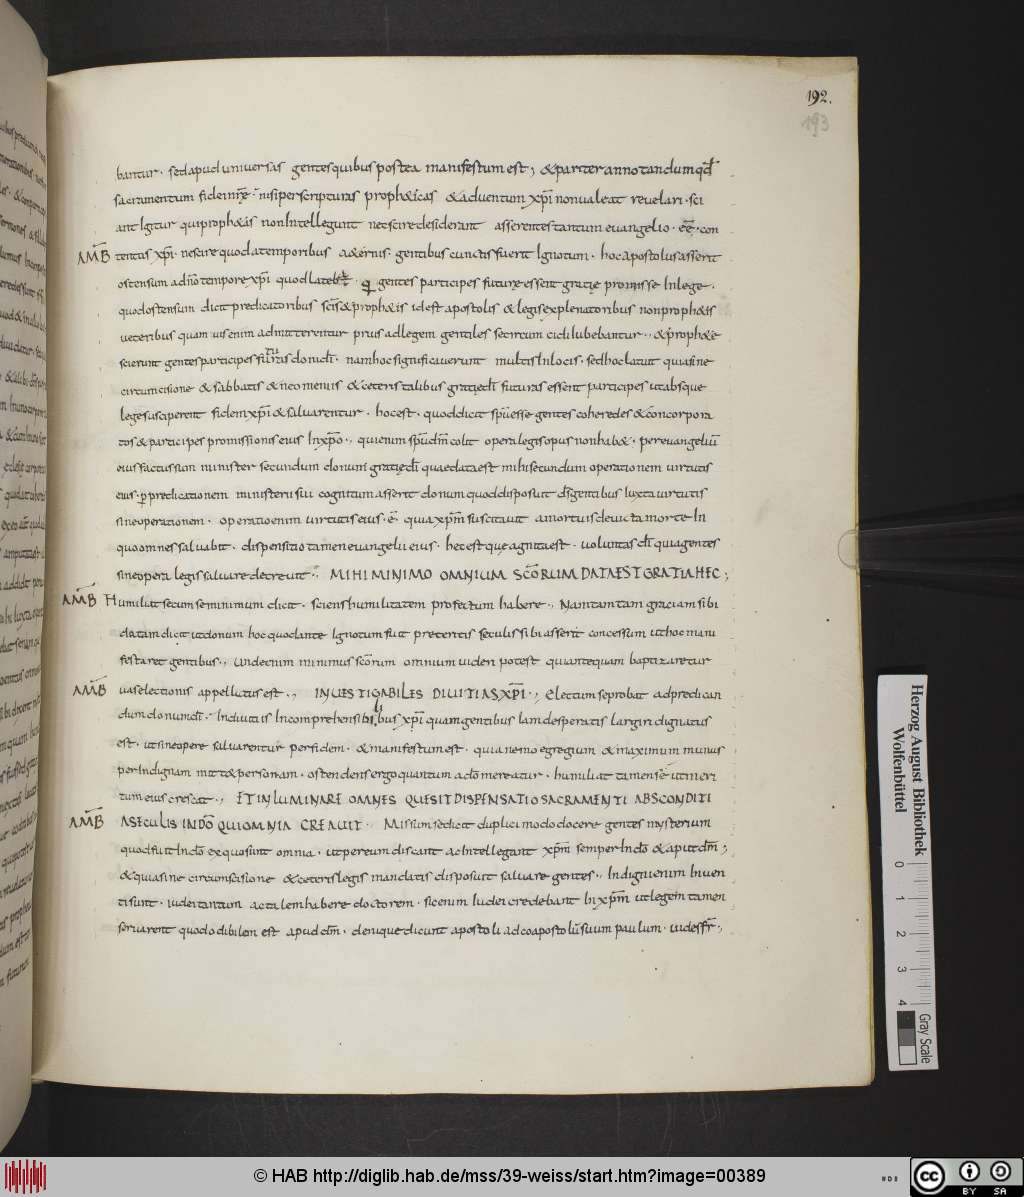 192.
193
bantur · sed apud universas gentes quibus postea manifestum est ; & pariter annotandum qđ
sacramentum fidei nr̄e · nisi per scripturas proph&icas & adventum xp̄i non valeat revelari · sci
ant Igitur qui proph&as non Intellegunt nec scire desiderant asserentes tantum evangelio · ēē · con
AM̄B tentas xp̄i · nescire quod a temporibus a&ernis · gentibus cunctis fuerit Ignotum · hoc apostolus asserit
ostensum ad nō tempore xp̄i quod gentes participes futurę essent gratię promisse In lege ·
quod ostensum dicit predicatoribus scīs & proph&is id est apostolis & legis explanatoribus non proph&is
veteribus quam vis enim admitterentur prius ad legem gentiles sed circumcidi lubebantur · & proph&ę
scierunt gentes participes donū dī · nam hoc significaverunt multis In locis · sed hoc latuit quia sine
circumcisione & sabbatis & neomeniis & ceteris talibus gratię dī futuras essent participes ut absque
lege susciperent fidem xp̄i & salvarentur · hoc est · quod dicit sp̄u esse gentes coheredes & concorpora
tos & participes promissionis eius In xp̄o ·, qui enim sp̄u dm̄ colit opera legis opus non hab& · per evangeliū
cuius factus sum minister secundum donum gratię dī quae data est mihi secundum operationem virtutis
eius · ꝑ predicationem ministerii sui cognitum asserit donum quod disposuit ds̄ gentibus Iuxta virtutis
sine operationem · operatioenim virtutis eius · ē · quia xp̄m suscitavit a mortuis devicta morte In
quo omnes salvabit · dispensatio tamen evangelii eius · hec est quę agnita est · voluntas dī quia gentes
sine opera legis salvare decrevit ·, MIHI MINIMO OMNIUM SCŌRUM DATA EST GRATIA HEC ;
AM̄B Humiliat secum se minimum dicit · sciens humilitatem profectum habere ·, Nam tam tam graciam sibi
datam dicit ut donum hoc quod ante Ignotum fuit preteritis seculis sibi asserit concessum ut hoc mani
festaret gentibus ·, unde enim minimus scōrum omnium videri potest qui antequam baptizaretur
AM̄B vas electionis appellatus est ·, INUESTIGABILES DIUITIAS XP̄I ·, Electum se probat ad predican
dum donum dī · Indivitiis Incomprehensibilibus xp̄i quam gentibus Iam desperatis largiri dignatus
est · ut sine opere salvarentur per fidem · & manifestum est · quia nemo egregium & maximum munus
per Indignam mitt& personam · ostendens ergo quantum a dō mereatur · humiliat tamen sē ut meri
tum eius crescat ·, ET INLUMINARE OMNES QUE SIT DISPENSATIO SACRAMENTI ABSCONDITI
AM̄B A SECULIS IN DŌ QUI OMNIA CREAUIT · Missum se dicit duplici modo docere gentes mysterium
quod fuit In dō ex quo sunt omnia · ut per eum discant ac Intellegant xp̄m semper In dō & aput dm̄ ;
& quia sine circumscisione & ceteris legis mandatis disposuit salvare gentes ·, Indigni enim Inven
ti sunt · iudei tantum ac talem habere doctorem · sic enim Iudei credebant In xp̄m ut legem tamen
servarent quod odibilem est apud dm̄ · denique dicunt apostoli ad coapostolū suum paulum · vides fr̄ ;
Herzog August Bibliothek
Wolfenbüttel
0 1 2 3 4
Gray Scale
© HAB http://diglib.hab.de/mss/39-weiss/start.htm?image=00389
cc BY SA